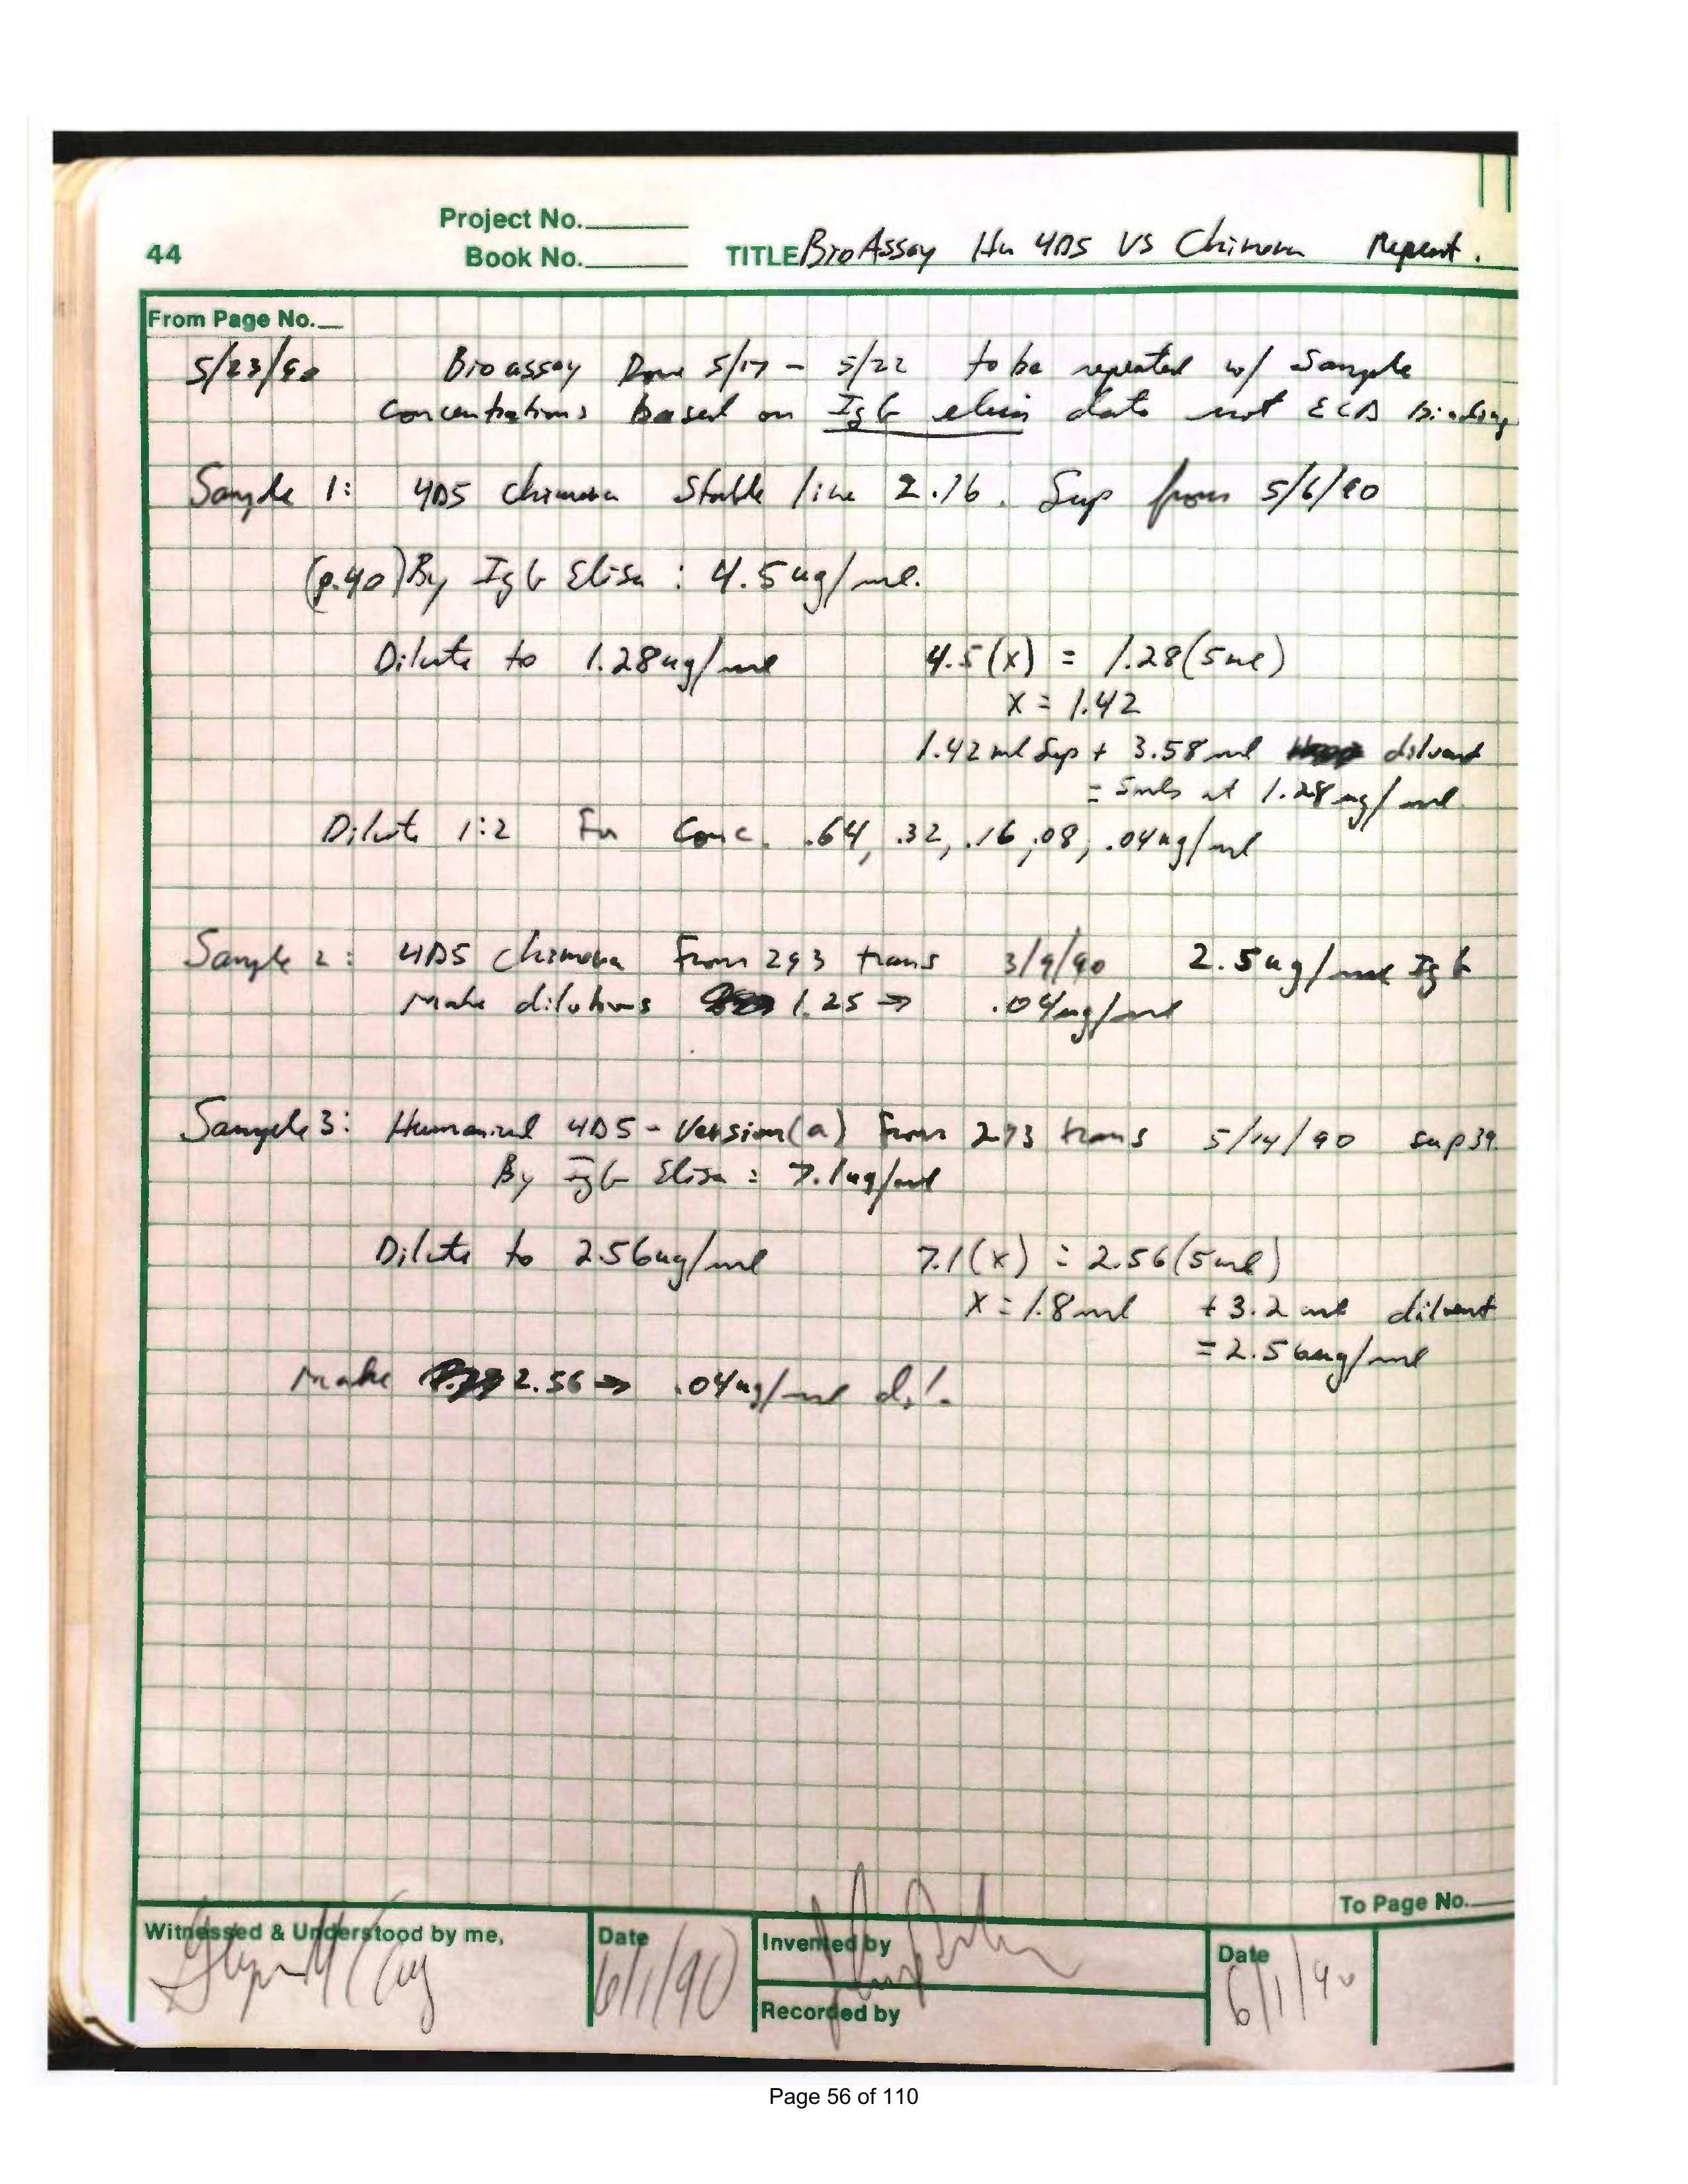 Project No.
44 Book No. TITLE BioAssay Hu 4D5 VS Chimera Repeat.
From Page No.
5/23/90 Bioassay Done 5/17 - 5/22 to be repeated w/ Sample
Concentrations based on IgG elisa data not ECD binding
Sample 1: 4D5 chimera Stable line 2.16. Sup from 5/6/90
(p.40) By IgG Elisa : 4.5ug/ml.
Dilute to 1.28ug/ml 4.5(x) = 1.28(5ml)
x = 1.42
1.42 ml Sup + 3.58 ml diluent
= 5mls at 1.28ug/ml
Dilute 1:2 For Conc. .64, .32, .16, .08, .04ug/ml
Sample 2: 4D5 chimera From 293 trans 3/9/90 2.5ug/ml IgG
Make dilutions 1.25 → .04ug/ml
Sample 3: Humanized 4D5 - Version(a) From 293 trans 5/14/90 sup 39.
By IgG Elisa : 7.1ug/ml
Dilute to 2.56ug/ml 7.1(x) = 2.56(5ml)
x = 1.8ml + 3.2 ml diluent
= 2.56ug/ml
Make 2.56 → .04ug/ml dil.
To Page No.
Witnessed & Understood by me, Date Invented by Date
6/1/90 6/1/90
Recorded by
Page 56 of 110